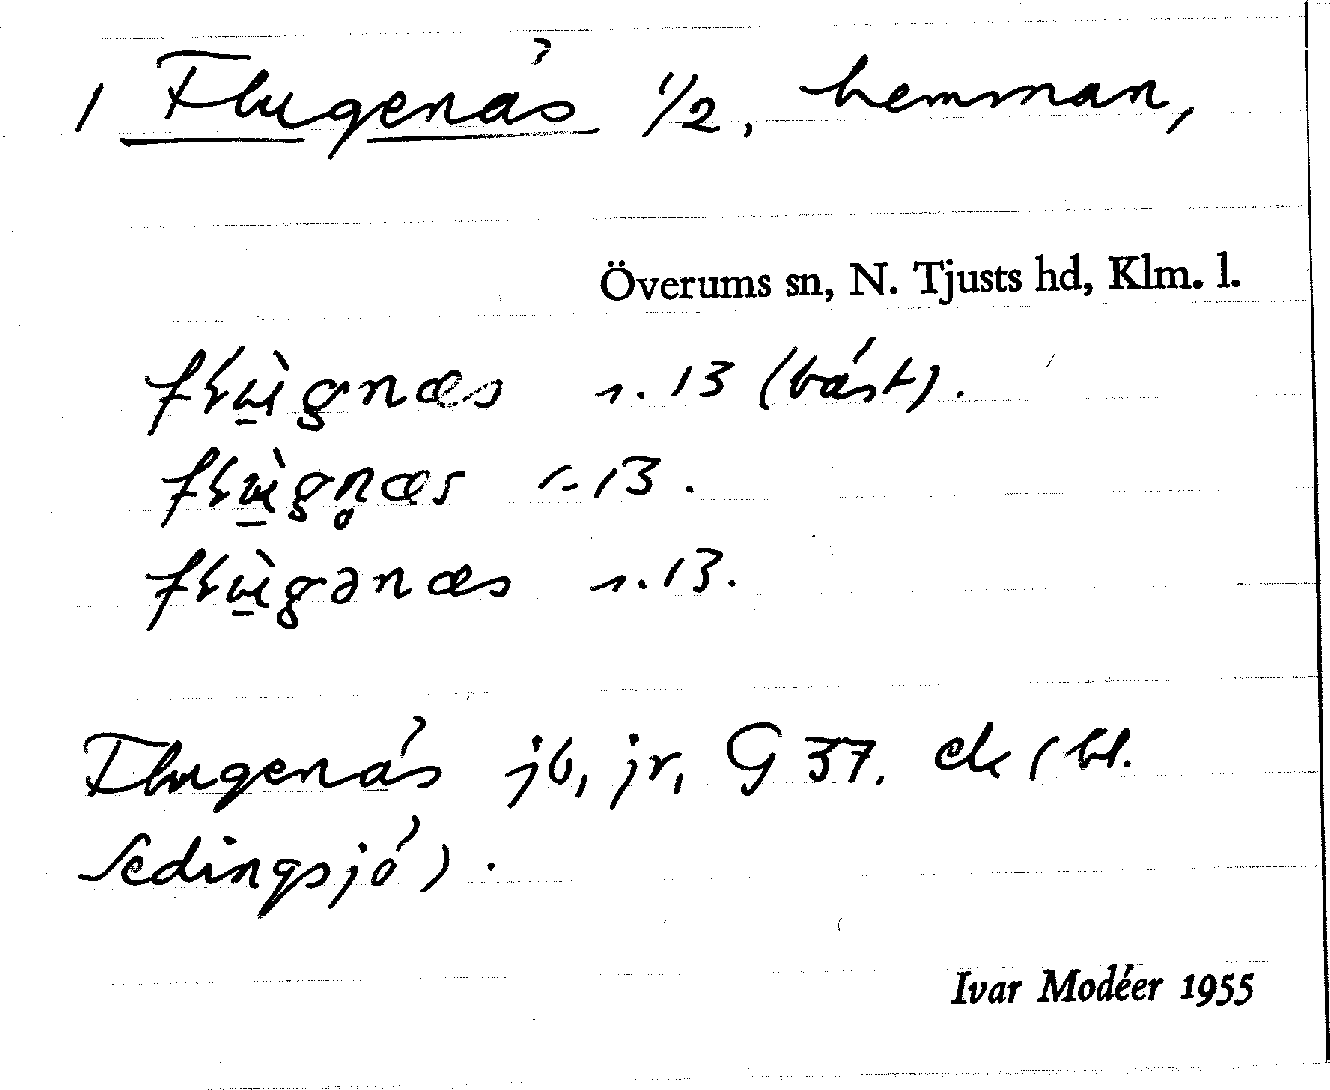 1 Flugenäs 1/2, hemman,
Överums sn, N. Tjusts hd, Klm. l.
flɯ̀gnæs s. 13 (bäst).
flɯ̀gn̥æs s. 13.
flɯ̀gənæs s. 13.
Flugenäs jb, jr, G 37. ek (bl.
Sedingsjö).
Ivar Modéer 1955